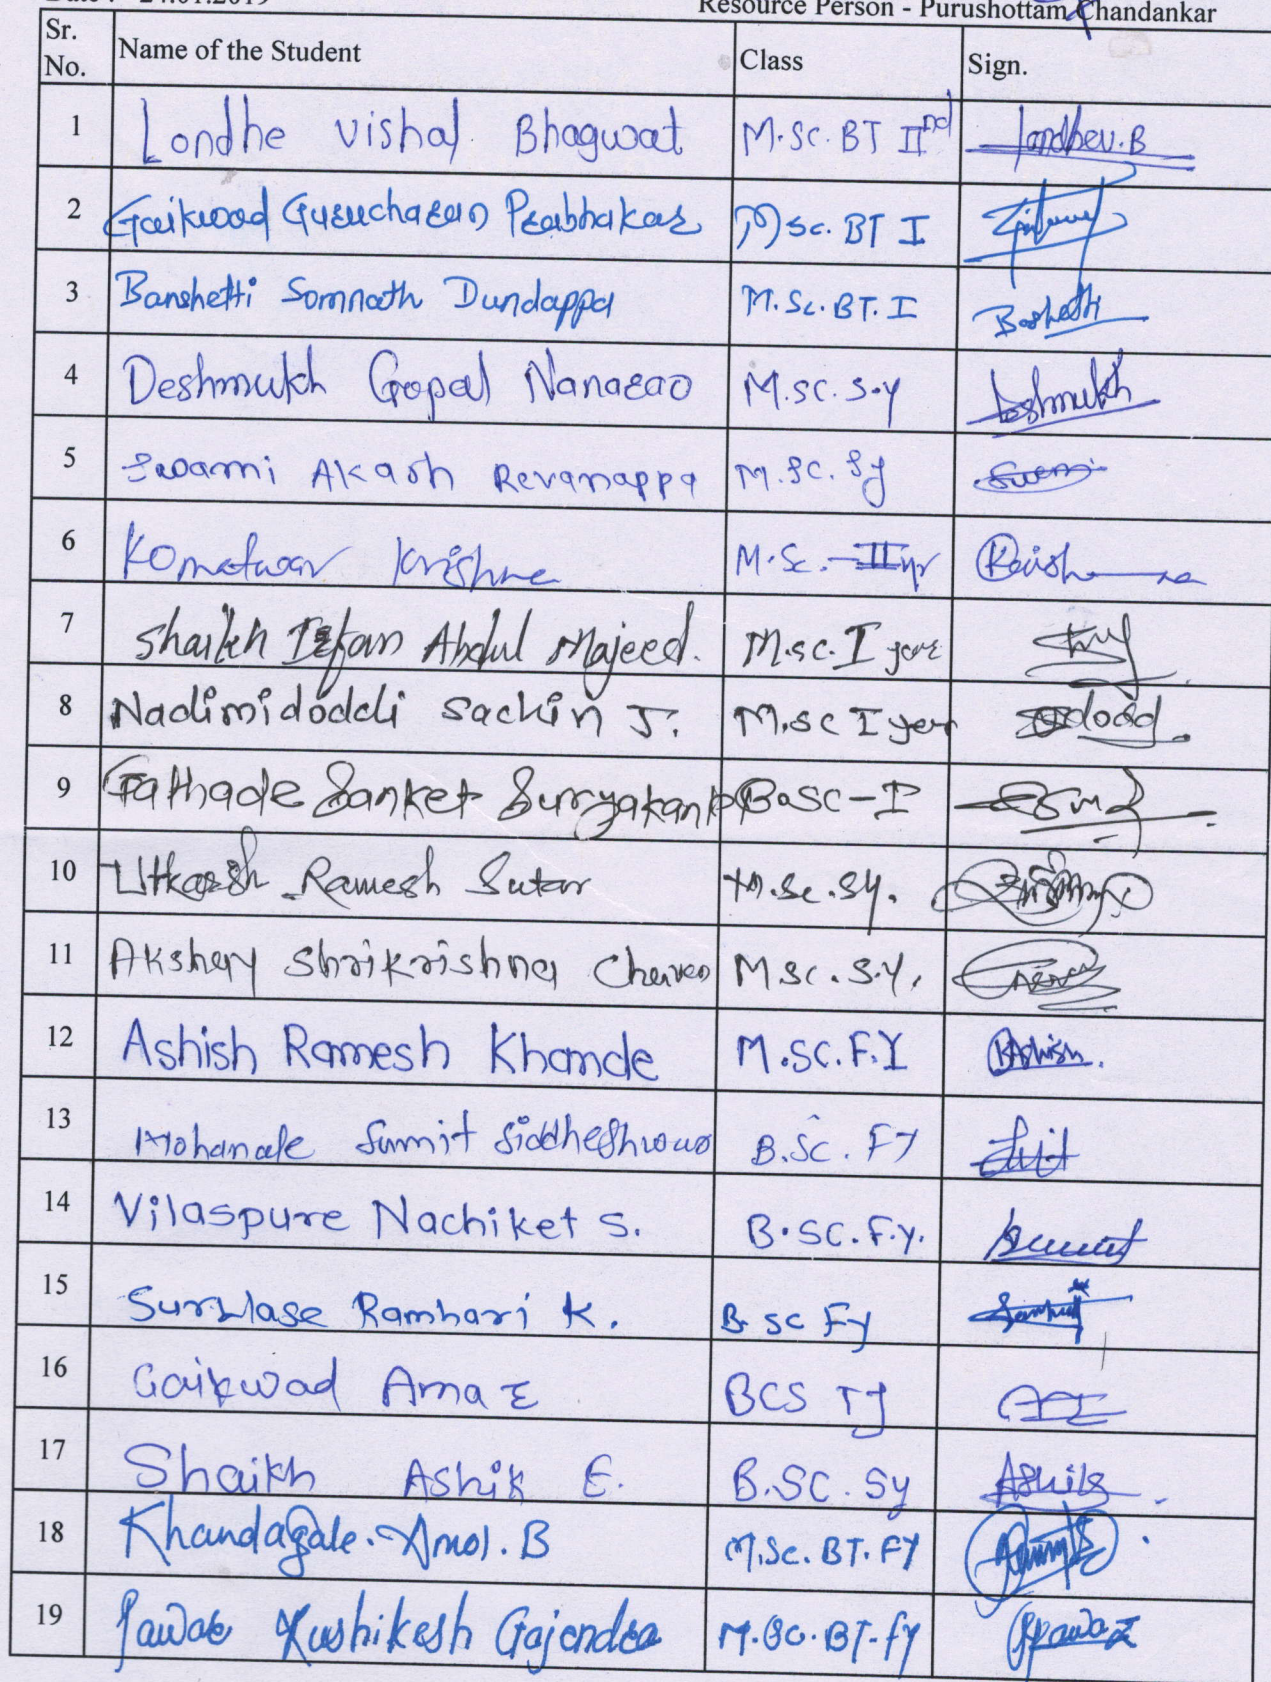 Date : - 24.01.2019 Resource Person - Purushottam Chandankar
Sr. No. Name of the Student Class Sign.
1 Londhe Vishal Bhagwat M.Sc. BT IInd Londhe V.B
2 Gaikwad Gurucharan Prabhakar MSc. BT I
3 Banshetti Somnath Dundappa M.Sc. BT. I Banshetti
4 Deshmukh Gopal Nanarao M.SC. S.y Deshmukh
5 Swami Akash Revanappa M.Sc. Sy Swami
6 Kometwar Krishna M.Sc. - II yr Krishna
7 Shaikh Irfan Abdul Majeed. M.sc. I year
8 Nadimidoddi Sachin J. M.sc I year
9 Gathade Sanket Suryakant B.SC-I
10 Utkarsh Ramesh Sutar M.Sc. SY.
11 Akshay Shrikrishna Chavan M.SC. S.Y.
12 Ashish Ramesh Khamde M.SC. F.Y Ashish.
13 Mohanale Sumit Siddheshwar B.Sc. FY
14 Vilaspure Nachiket S. B.SC. F.y.
15 Surwase Ramhari K. B.sc Fy
16 Gaikwad Amar BCS TY
17 Shaikh Ashik E. B.SC. Sy Ashik
18 Khandagale. Amol. B M.Sc. BT. FY
19 Pawar Rushikesh Gajendra M.Sc. BT-FY Pawar